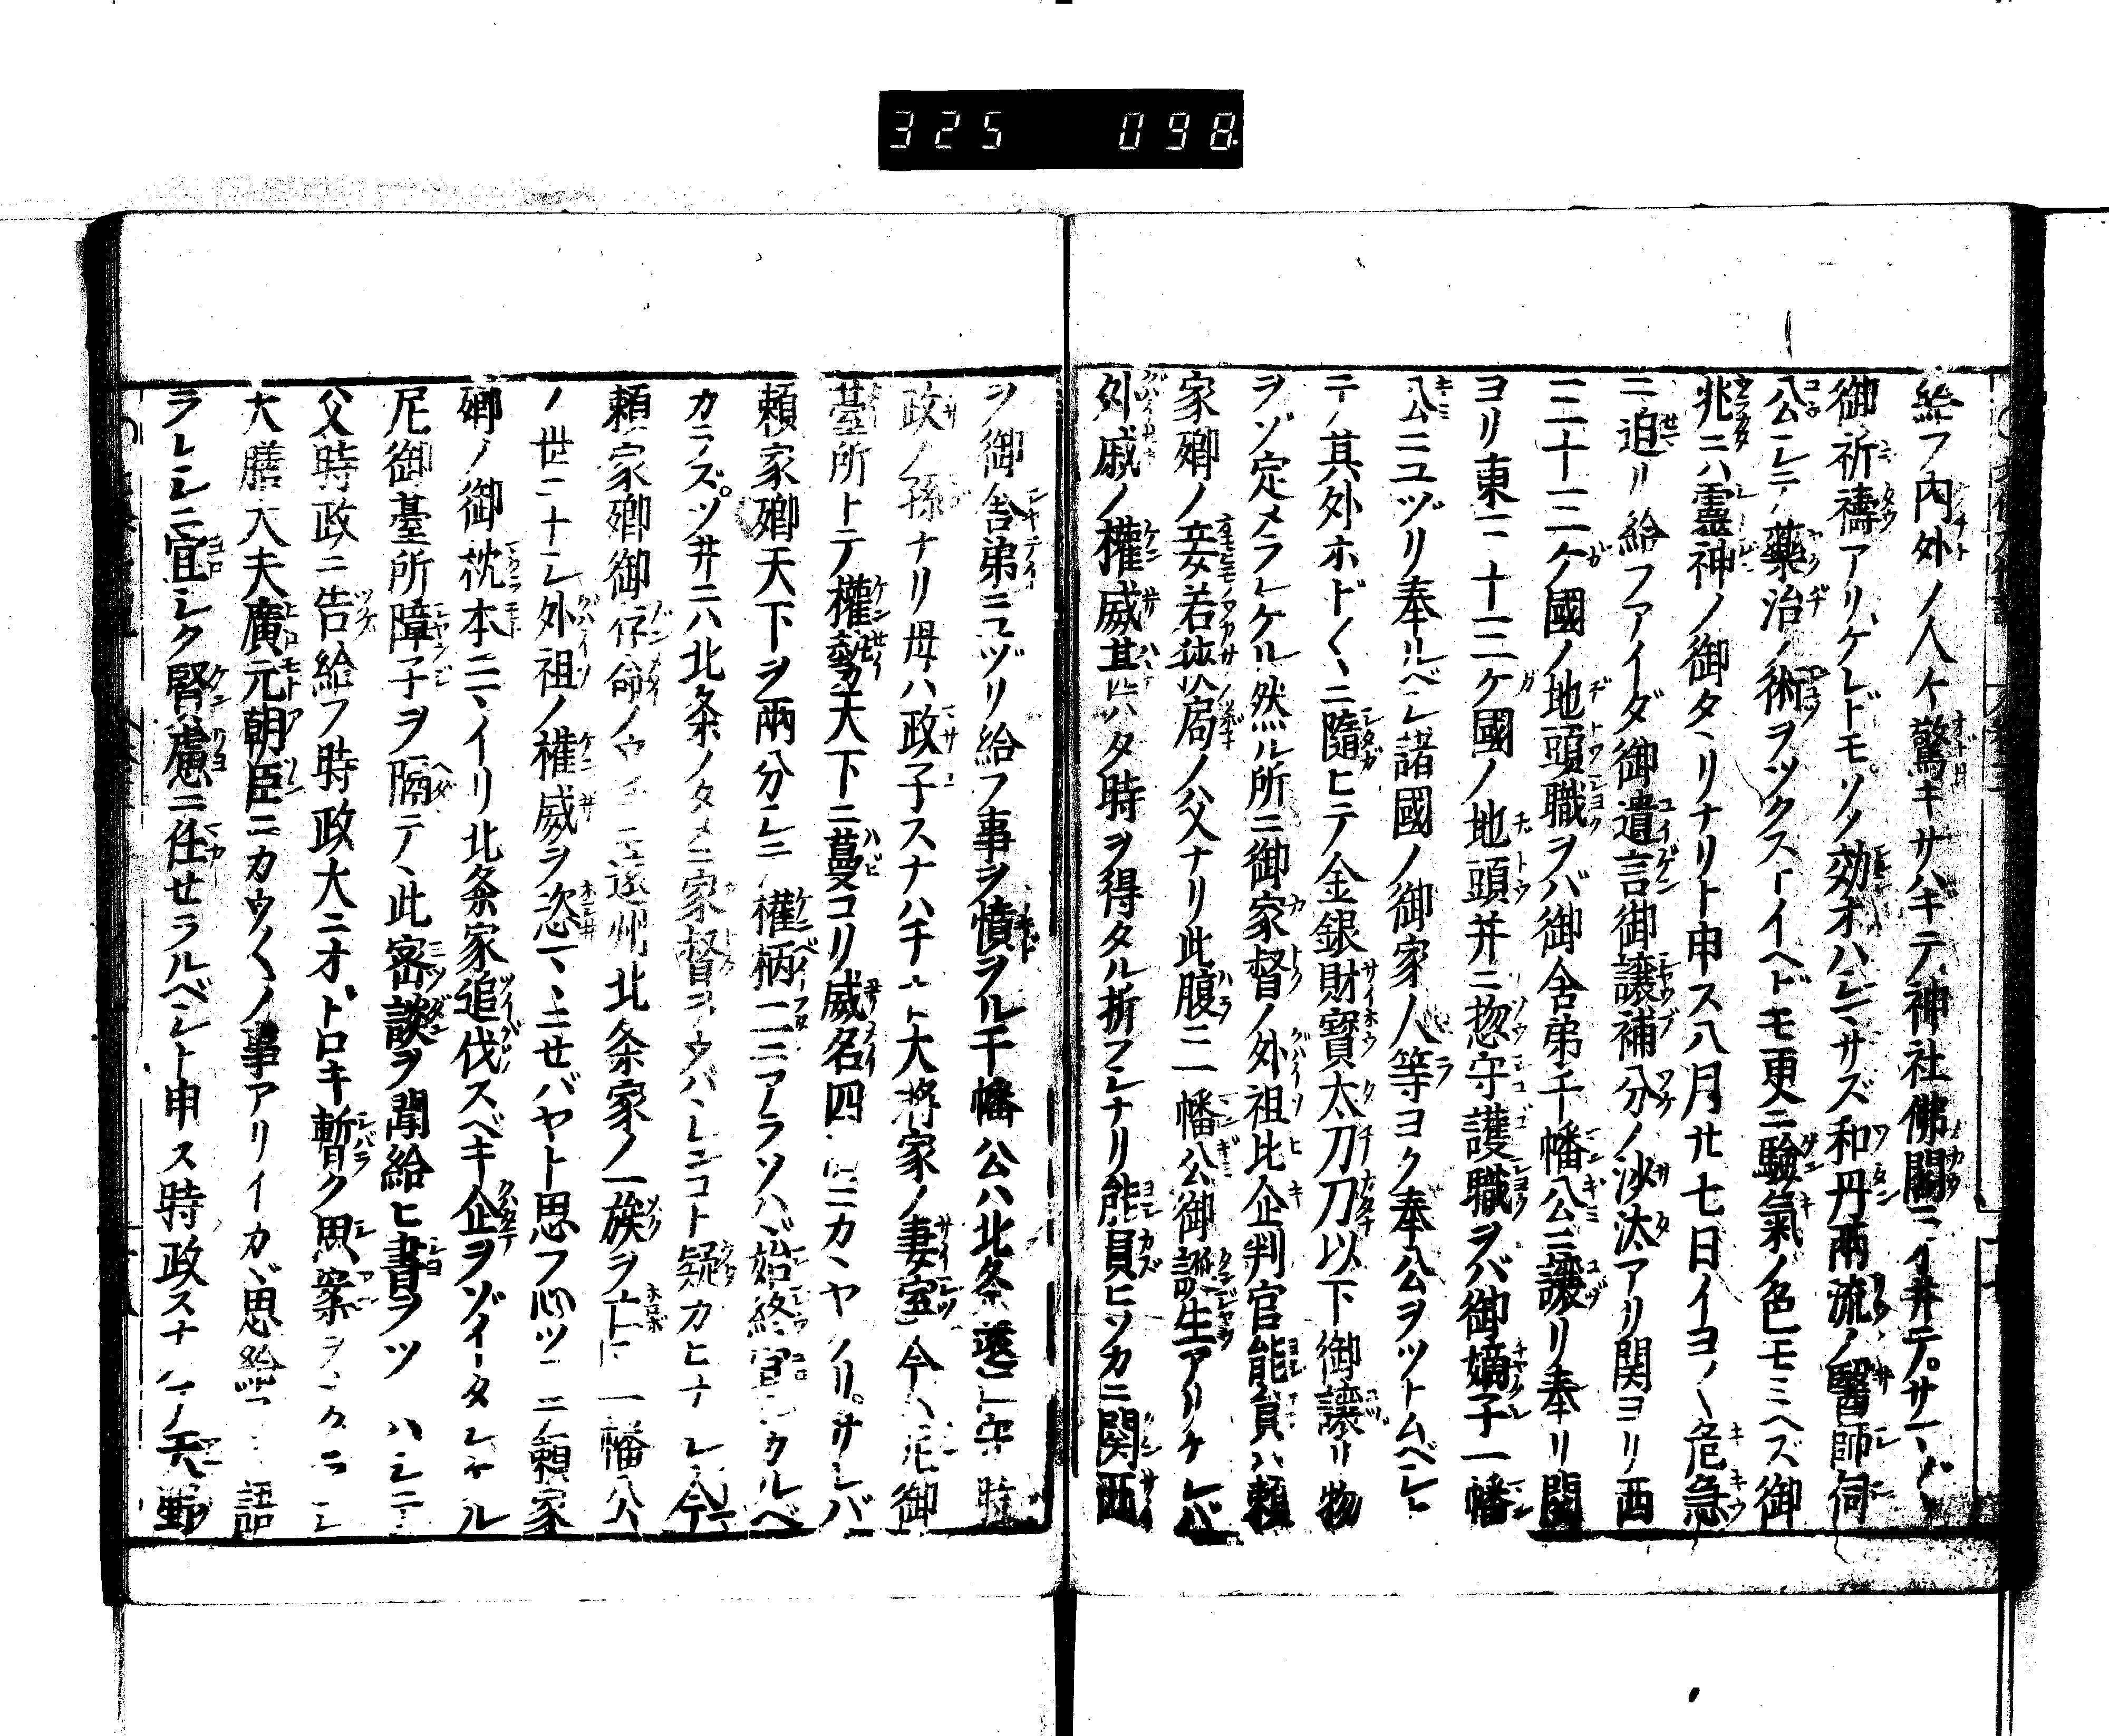 325 098.
給フ内外ノ人々驚キサハギテ神社佛閣ニイ井テ。サマ〴〵
御祈禱アリケレドモ。ソノ効オハシマサズ和丹兩流ノ醫師伺
公シテ藥治ノ術ヲツクストイヘドモ更ニ驗氣ノ色モミヘズ御
兆ニハ靈神ノ御タヽリナリト申ス八月廿七日イヨ〳〵危急
ニ迫リ給フアイダ御遺言御讓補分ノ沙汰アリ関ヨリ西
三十三ケ國ノ地頭職ヲバ御舎弟千幡公ニ讓リ奉リ関
ヨリ東二十三ケ國ノ地頭并ニ惣守護職ヲバ御嫡子一幡
公ニユヅリ奉ルベシ諸國ノ御家人等ヨク奉公ヲツトムベシト
テノ其外ホド〳〵ニ隨ヒテ金銀財寶太刀刀以下御讓リ物
ヲゾ定メラレケル然ル所ニ御家督ノ外祖比企判官能員ハ頼
家卿ノ妾若狭局ノ父ナリ此腹ニ一幡公御誕生アリケレバ
外戚ノ權威甚ハタ時ヲ得タル折フシナリ能員ヒソカニ関西
ヲ御舎弟ニユヅリ給フ事ヲ憤ヲル千幡公ハ北条遠江守時
政ノ孫ナリ母ハ政子スナハチ大将家ノ妻室今ハ尼御
臺所トテ權勢天下ニ蔓コリ威名四海ニカヽヤケリ。サレバ
頼家卿天下ヲ兩分シテ權柄二ニアラソハヾ始終宜シカルベ
カラズ。ツ井ニハ北条ノタメニ家督ヲウバハレンコト疑カヒナシ今
頼家卿御存命ノウチニ遠州北条家ノ一族ヲ亡ボシ一幡公
ノ世ニナシ外祖ノ權威ヲ恣マヽニセバヤト思フ心ツキテ頼家
卿ノ御枕本ニマイリ北条家追伐スベキ企ヲゾイタシケル
尼御臺所障子ヲ隔テヽ此密談ヲ聞給ヒ書ヲツカハシテ
父時政ニ告給フ時政大ニオドロキ暫ク思案ヲメグラシ
大膳大夫廣元朝臣ニカウ〳〵ノ事アリイカヾ思給フト語
ラレシニ宜シク賢慮ニ任セラルベシト申ス時政スナハチ天野